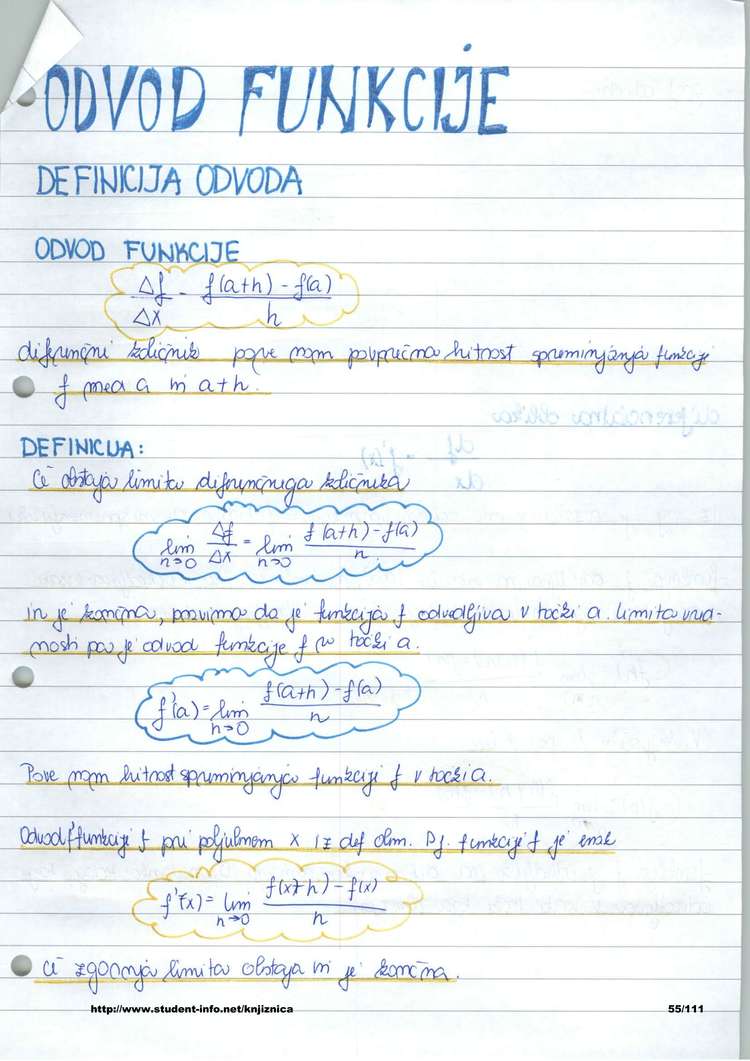 ODVOD FUNKCIJE
DEFINICIJA ODVODA
ODVOD FUNKCIJE
Δf/Δx = (f(a+h) - f(a))/h
diferenčni količnik pove nam povprečna hitrost spreminjanja funkcije
f med a in a+h.
DEFINICIJA:
Če obstaja limita diferenčnega količnika
lim h→0 Δf/Δx = lim h→0 (f(a+h) - f(a))/h
in je končna, pravimo da je funkcija f odvedljiva v točki a. limita
pa je odvod funkcije f v točki a.
f'(a) = lim h→0 (f(a+h) - f(a))/h
Pove nam hitrost spreminjanja funkcije f v točki a.
Odvod f' funkcije f pri poljubnem x iz def. obm. Df. funkcije f je enak
f'(x) = lim h→0 (f(x+h) - f(x))/h
če zgornja limita obstaja in je končna.
http://www.student-info.net/knjiznica
55/111